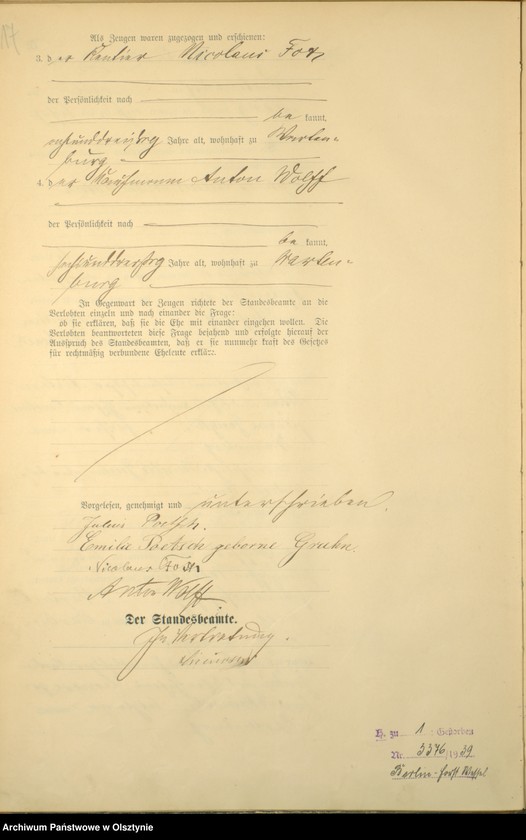 17
Als Zeugen waren zugezogen und erschienen:
3. der Rentier Nicolaus
der Persönlichkeit nach
be kannt,
Jahre alt, wohnhaft zu Warten=
burg
4. der Kaufmann Anton Wolff
der Persönlichkeit nach
be kannt,
sechsunddreißig Jahre alt, wohnhaft zu Warten=
burg
In Gegenwart der Zeugen richtete der Standesbeamte an die
Verlobten einzeln und nach einander die Frage:
ob sie erklären, daß sie die Ehe mit einander eingehen wollen. Die
Verlobten beantworteten diese Frage bejahend und erfolgte hierauf der
Ausspruch des Standesbeamten, daß er sie nunmehr kraft des Gesetzes
für rechtmäßig verbundene Eheleute erkläre.
Vorgelesen, genehmigt und unterschrieben.
Julius
Emilie geborne
Nicolaus
Anton Wolff
Der Standesbeamte.
In Vertretung.
H. zu 1: Gestorben
Nr. 3376/1939
Berlin-Horst Wessel
Archiwum Państwowe w Olsztynie